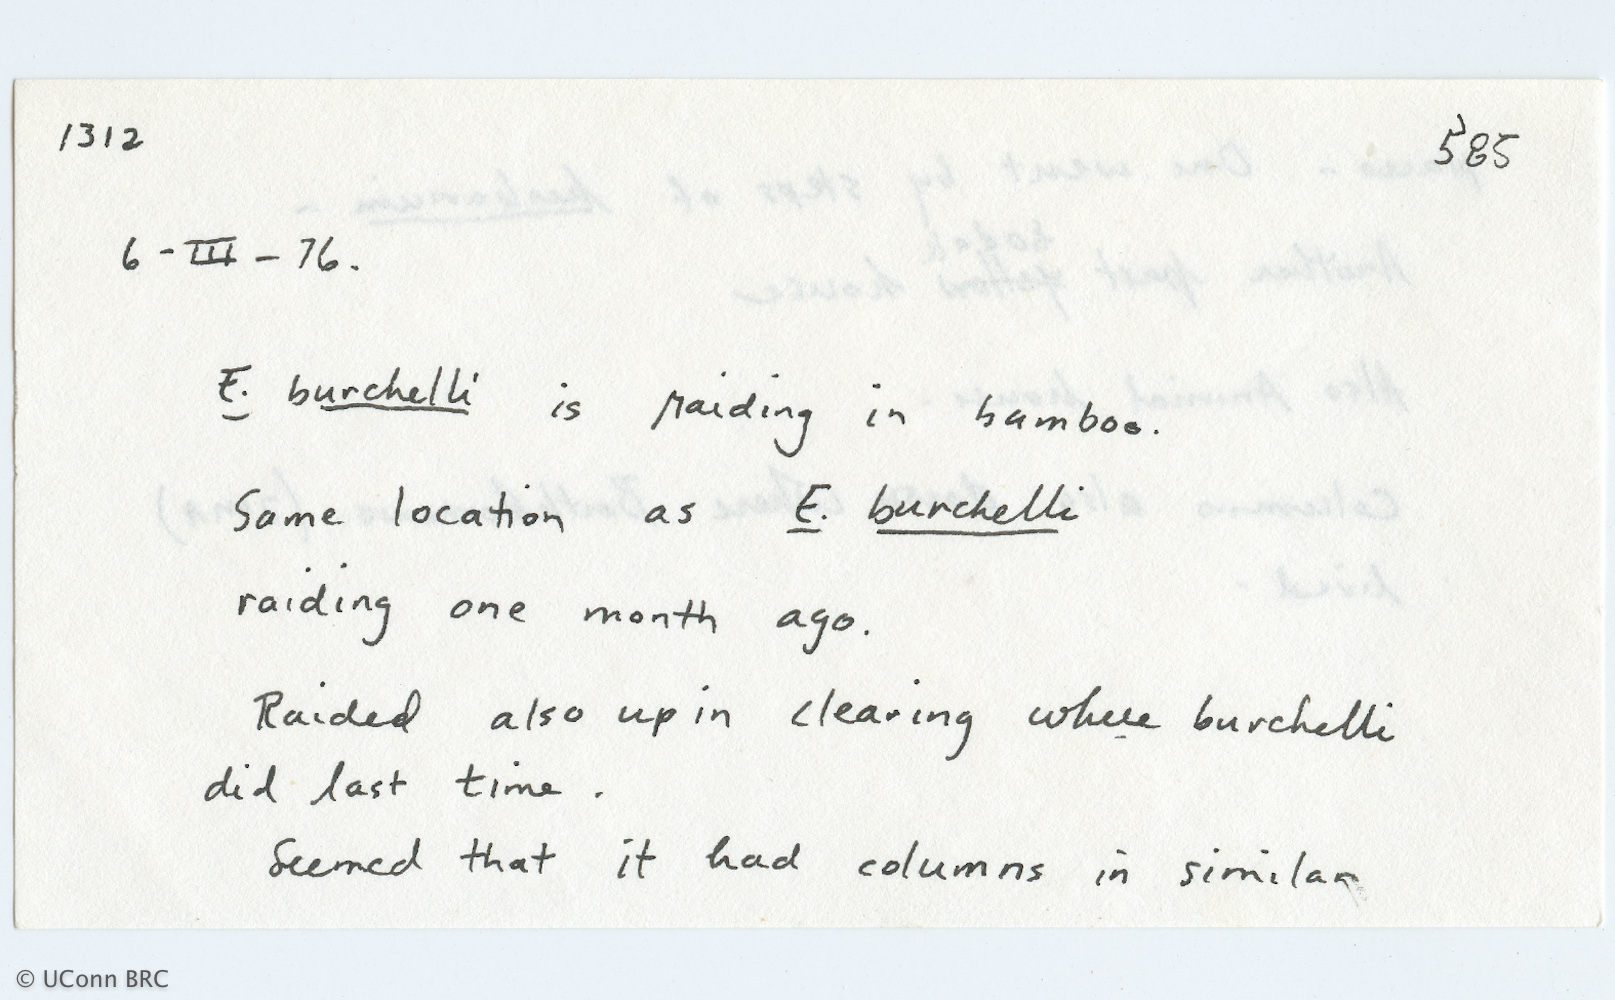 1312
585
6-III-76.
E. burchelli is raiding in bamboo.
Same location as E. burchelli
raiding one month ago.
Raided also up in clearing where burchelli
did last time.
Seemed that it had columns in similar
© UConn BRC